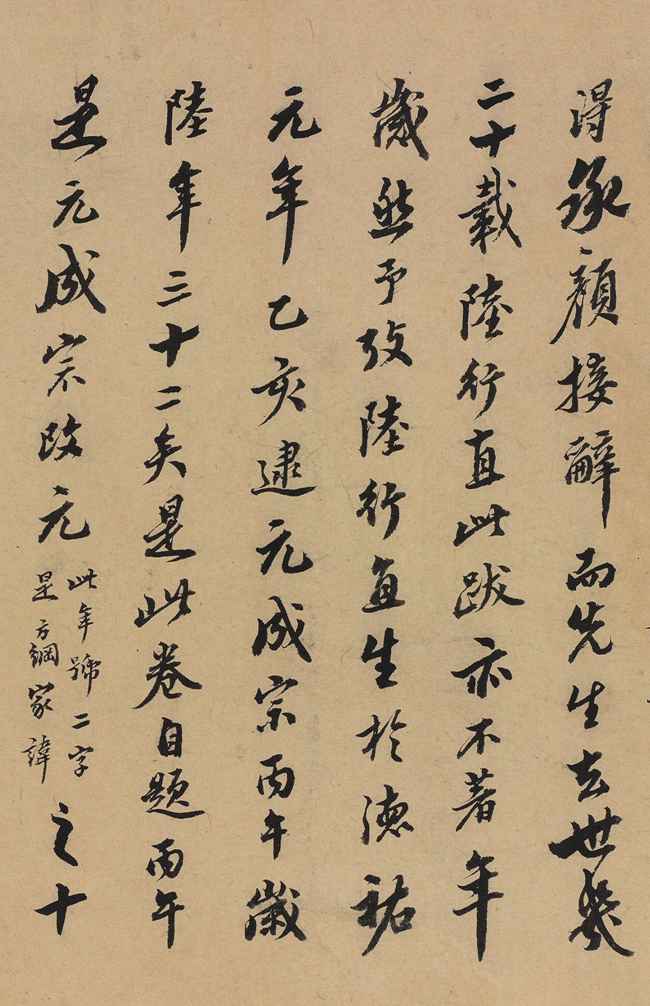 得承顔接辭而先生去世幾
二十載陸行直此跋亦不著年
歲然予攷陸行直生於德祐
元年乙亥逮元成宗丙午歲
陸年三十二矣是此卷自題丙午
是元成宗改元
此年號二字
是方綱家諱
之十